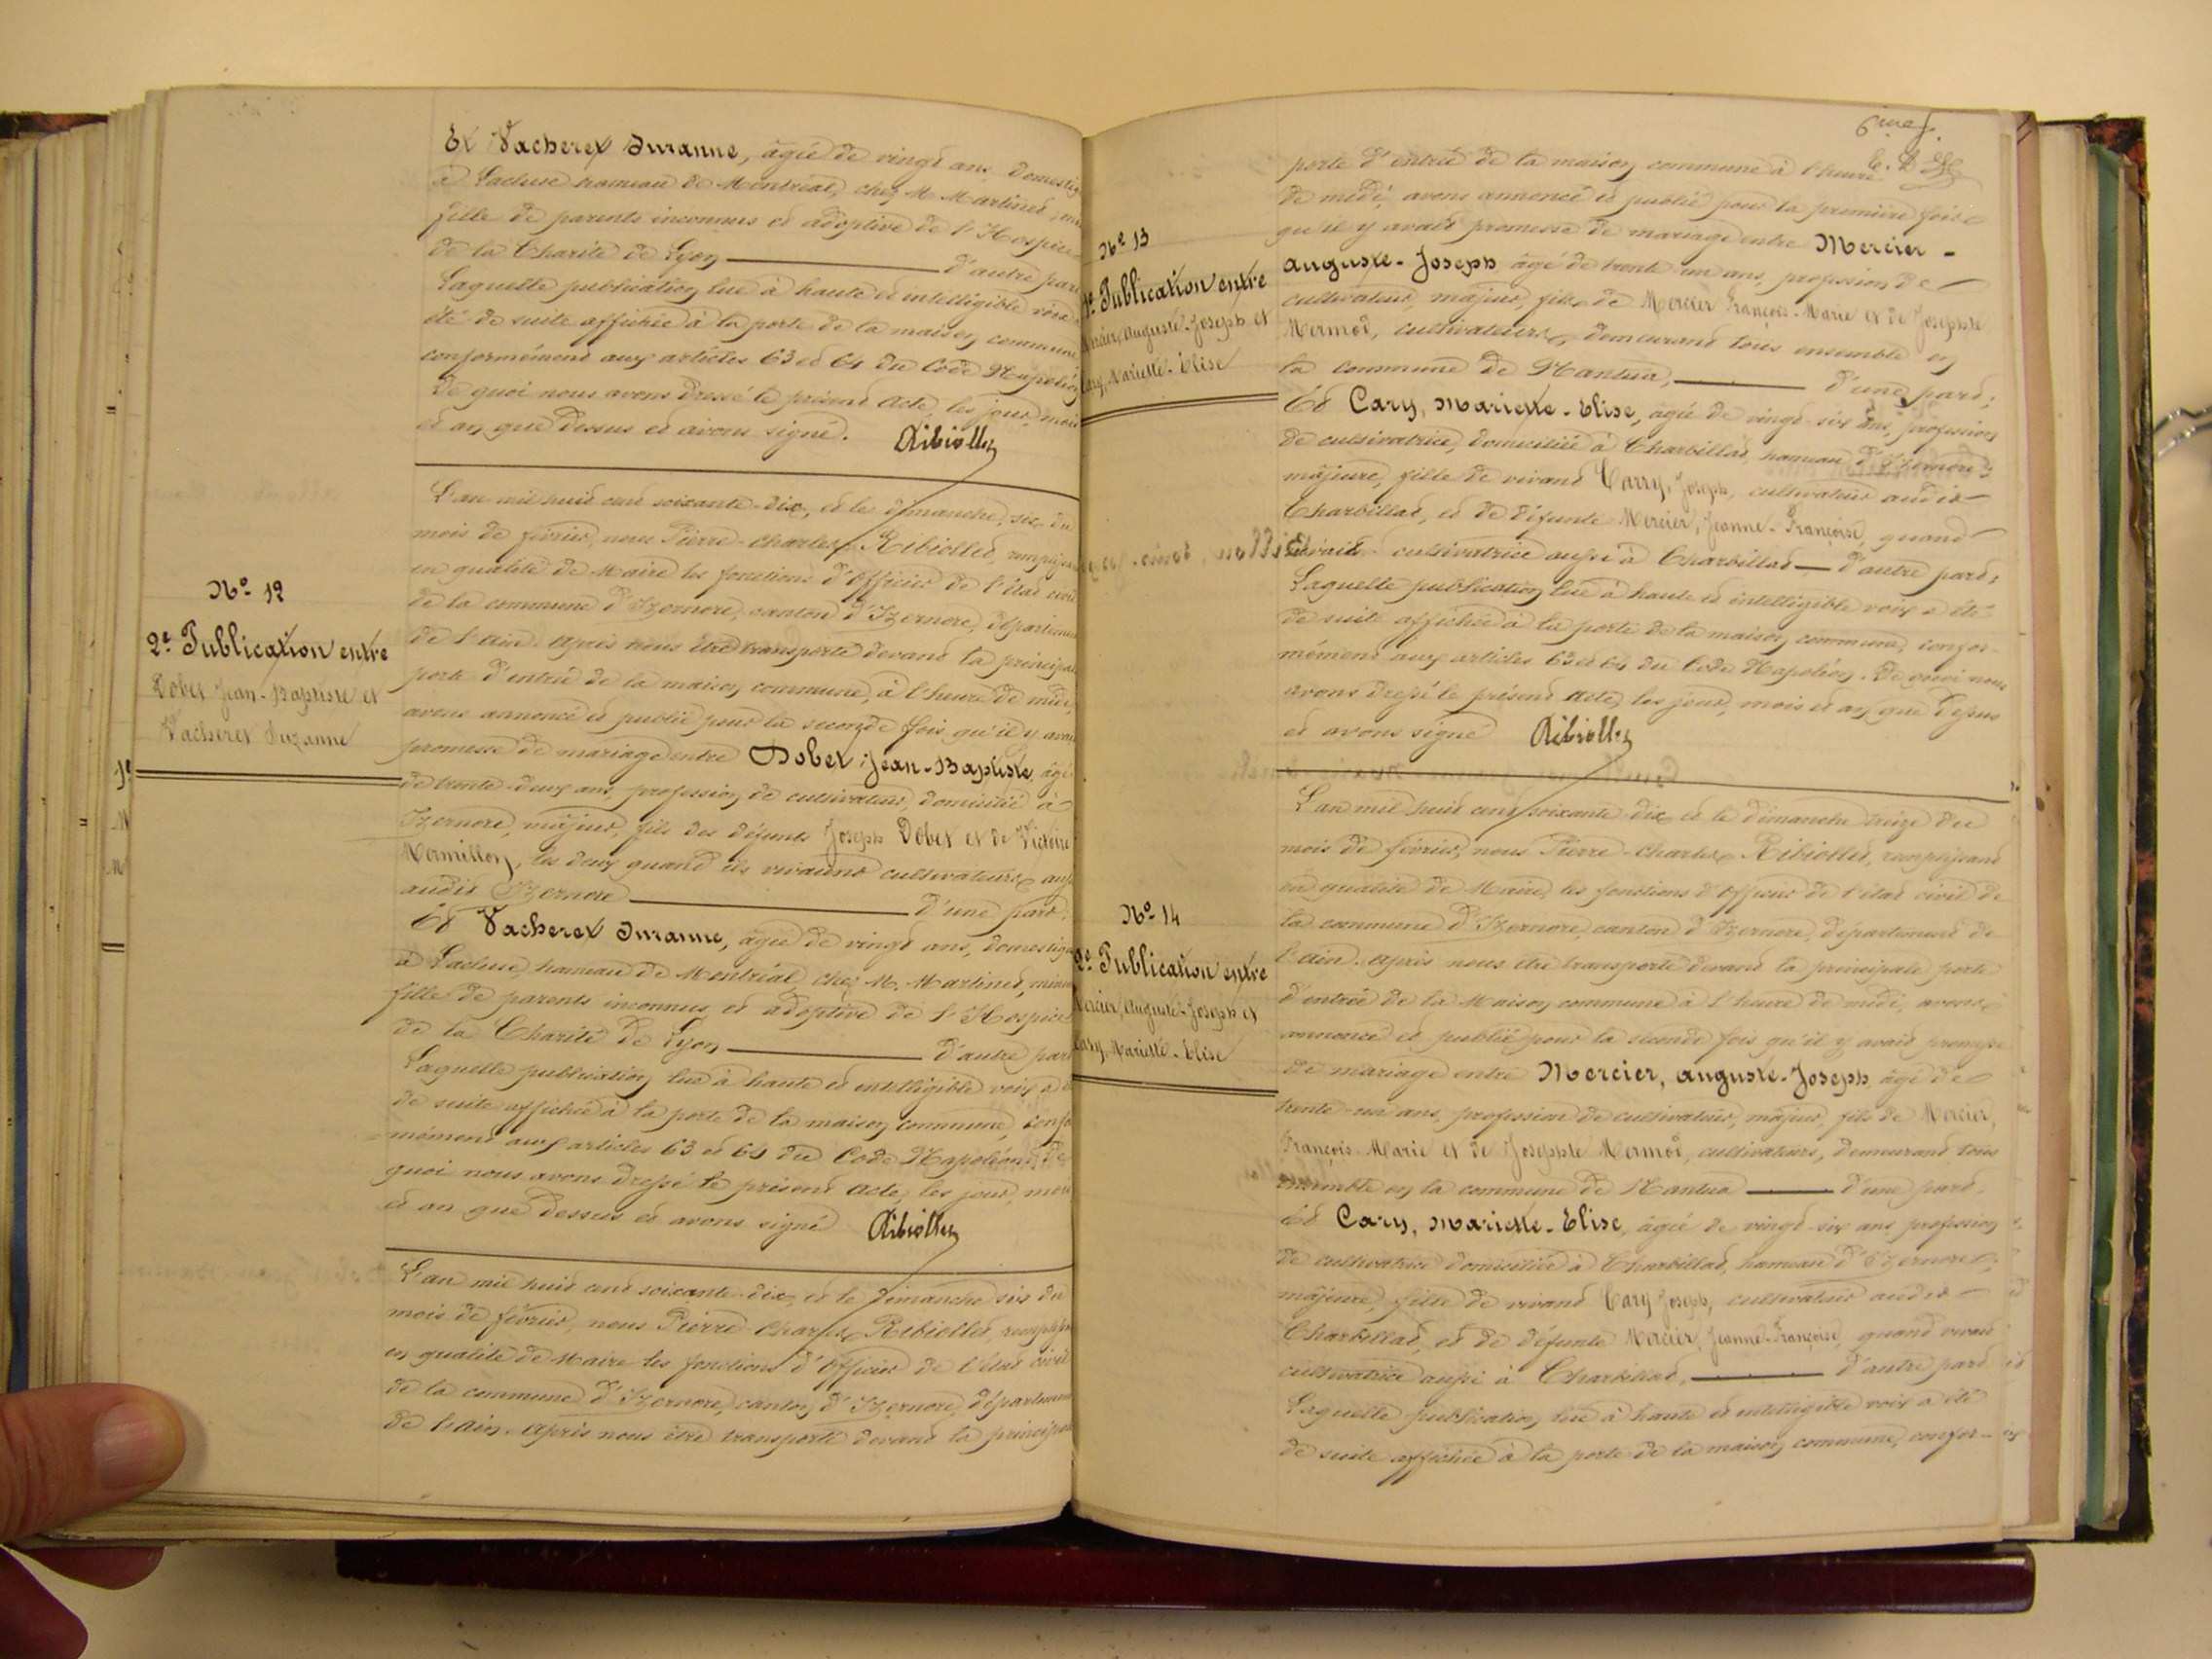 Et Vacheret Suzanne, âgée de vingt ans, domestiq
à Lacluse hameau de Montréal, chez M. Martinet, min
fille de parents inconnus et adoptive de l'Hospice
de la Charité de Lyon d'autre part
Laquelle publication lue à haute et intelligible voix a
été de suite affichée à la porte de la maison commune
conformément aux articles 63 et 64 du Code Napoléon
De quoi nous avons dressé le présent acte, les jour, mois
et an que dessus et avons signé. Ribiollet
N° 12
2e Publication entre
Dobet Jean-Baptiste et
Vacheret Suzanne
L'an mil huit cent soixante-dix, et le dimanche, six du
mois de février, nous Pierre-Charles Ribiollet, remplissant
en qualité de Maire les fonctions d'Officier de l'état civil
de la commune d'Izernore, canton d'Izernore, départemen
de l'Ain. Après nous être transporté devant la principale
porte d'entrée de la maison commune, à l'heure de midi,
avons annoncé et publié pour la seconde fois qu'il y avait
promesse de mariage entre Dobet Jean-Baptiste, âgé
de trente-deux ans, profession de cultivateur, domicilié à
Izernore, majeur, fils des défunts Joseph Dobet et de Victoire
Mermillon, les deux quand ils vivaient cultivateurs aussi
audit Izernore d'une part.
Et Vacheret Suzanne, âgée de vingt ans, domestique
à Lacluse, hameau de Montréal, chez M. Martinet, mineu
fille de parents inconnus et adoptive de l'Hospice
de la Charité de Lyon d'autre part
Laquelle publication lue à haute et intelligible voix a é
de suite affichée à la porte de la maison commune, confo
mément aux articles 63 et 64 du Code Napoléon. De
quoi nous avons dressé le présent acte, les jour, mois
et an que dessus et avons signé Ribiollet
L'an mil huit cent soixante-dix, et le dimanche six du
mois de février, nous Pierre-Charles Ribiollet, remplissan
en qualité de Maire les fonctions d'Officier de l'état civil
de la commune d'Izernore, canton d'Izernore, département
de l'Ain. Après nous être transporté devant la principale
6me f.
porte d'entrée de la maison commune à l'heure
de midi, avons annoncé et publié pour la première fois
qu'il y avait promesse de mariage entre Mercier -
Auguste-Joseph, âgé de trente-un ans, profession de
cultivateur, majeur, fils de Mercier François-Marie et de Josephte
Mermod, cultivateurs, demeurant tous ensemble en
la commune de Nantua, d'une part;
N° 13
1e Publication entre
Mercier, Auguste-Joseph et
Cary, Mariette-Elise
Et Cary, Mariette-Elise, âgée de vingt-six ans, profession
de cultivatrice, domiciliée à Charbillat, hameau d'Izernore,
majeure, fille de vivant Carry, Joseph, cultivateur audit
Charbillat, et de défunte Mercier, Jeanne-Françoise, quand
vivait cultivatrice aussi à Charbillat d'autre part;
Laquelle publication lue à haute et intelligible voix a été
de suite affichée à la porte de la maison commune, confor-
mément aux articles 63 et 64 du Code Napoléon. De quoi nous
avons dressé le présent acte, les jour, mois et an que dessus
et avons signé Ribiollet
L'an mil huit cent soixante-dix et le dimanche treize du
mois de février, nous Pierre-Charles Ribiollet, remplissant
en qualité de Maire, les fonctions d'Officier de l'état civil de
la commune d'Izernore, canton d'Izernore, département de
l'Ain. Après nous être transporté devant la principale porte
d'entrée de la Maison commune à l'heure de midi, avons
annoncé et publié pour la seconde fois qu'il y avait promesse
de mariage entre Mercier, Auguste-Joseph, âgé de
trente-un ans, profession de cultivateur, majeur, fils de Mercier,
François-Marie et de Josephte Mermod, cultivateurs, demeurant tous
ensemble en la commune de Nantua d'une part.
N° 14
2e Publication entre
Mercier, Auguste-Joseph et
Cary, Mariette-Elise
Et Cary, Mariette-Elise, âgée de vingt-six ans profession
de cultivatrice domiciliée à Charbillat, hameau d'Izernore,
majeure, fille de vivant Cary Joseph, cultivateur audit
Charbillat, et de défunte Mercier, Jeanne-Françoise, quand vivait
cultivatrice aussi à Charbillat, d'autre part
Laquelle publication, lue à haute et intelligible voix a été
de suite affichée à la porte de la maison commune, confor-